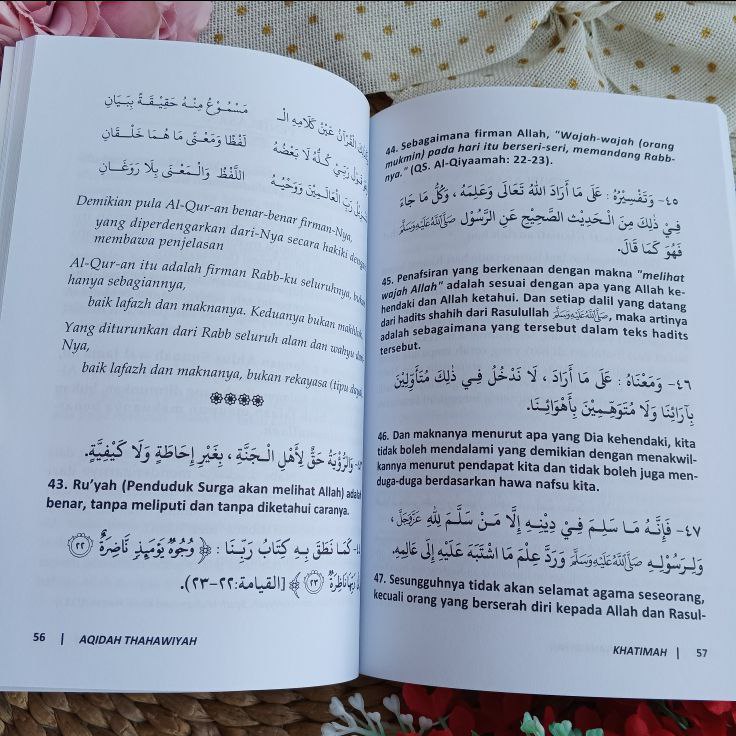 مَسْمُوْعُ مِنْهُ حَقِيْقَةً بِبَيَانِ
الْقُرْآنُ عَيْنُ كَلَامِهِ الْـ
لَفْظًا وَمَعْنًى مَا هُمَا خَلْـقَانِ
قَوْلُ رَبِّي كُلُّهُ لَا بَعْضُهُ
اللَّفْظُ وَالْـمَعْنَى بِلَا رَوَغَـانِ
رَبِّ الْعَالَمِيْنَ وَوَحْيُهُ
Demikian pula Al-Qur-an benar-benar firman-Nya,
yang diperdengarkan dari-Nya secara hakiki
membawa penjelasan
Al-Qur-an itu adalah firman Rabb-ku seluruhnya,
hanya sebagiannya,
baik lafazh dan maknanya. Keduanya bukan
Yang diturunkan dari Rabb seluruh alam dan wahyu
Nya,
baik lafazh dan maknanya, bukan rekayasa (tipu
وَالرُّؤْيَةُ حَقٌّ لِأَهْلِ الْـجَنَّةِ ، بِغَيْرِ إِحَاطَةٍ وَلَا كَيْفِيَّةٍ.
43. Ru'yah (Penduduk Surga akan melihat Allah)
benar, tanpa meliputi dan tanpa diketahui caranya.
كَمَا نَطَقَ بِهِ كِتَابُ رَبِّـنَا : ﴿ وُجُوهٌ يَوْمَئِذٍ نَّاضِرَةٌ ٢٢
رَبِّهَا نَاظِرَةٌ ٢٣ ﴾ [القيامة:٢٢-٢٣).
56 | AQIDAH THAHAWIYAH
44. Sebagaimana firman Allah, "Wajah-wajah (orang
mukmin) pada hari itu berseri-seri, memandang Rabb-
nya." (QS. Al-Qiyaamah: 22-23).
٤٥- وَتَفْسِيْرُهُ : عَلَى مَا أَرَادَ اللهُ تَعَالَى وَعَلِمَهُ ، وَكُلُّ مَا جَاءَ
فِيْ ذٰلِكَ مِنَ الْـحَدِيْثِ الصَّحِيْحِ عَنِ الرَّسُوْلِ ﷺ
فَهُوَ كَمَا قَالَ.
45. Penafsiran yang berkenaan dengan makna "melihat
wajah Allah" adalah sesuai dengan apa yang Allah ke-
hendaki dan Allah ketahui. Dan setiap dalil yang datang
dari hadits shahih dari Rasulullah ﷺ, maka artinya
adalah sebagaimana yang tersebut dalam teks hadits
tersebut.
٤٦- وَمَعْنَاهُ : عَلَى مَا أَرَادَ ، لَا نَدْخُلُ فِـي ذٰلِكَ مُتَأَوِّلِيْنَ
بِآرَائِنَا وَلَا مُتَوَهِّـمِيْنَ بِأَهْوَائِـنَا.
46. Dan maknanya menurut apa yang Dia kehendaki, kita
tidak boleh mendalami yang demikian dengan menakwil-
kannya menurut pendapat kita dan tidak boleh juga men-
duga-duga berdasarkan hawa nafsu kita.
٤٧- فَإِنَّهُ مَـا سَلِمَ فِـيْ دِيْنِهِ إِلَّا مَـنْ سَلَّـمَ لِلّٰهِ عَزَّوَجَلَّ ،
وَلِـرَسُوْلِـهِ ﷺ وَرَدَّ عِلْمَ مَا اشْتَبَهَ عَلَيْهِ إِلَى عَالِمِهِ.
47. Sesungguhnya tidak akan selamat agama seseorang,
kecuali orang yang berserah diri kepada Allah dan Rasul-
KHATIMAH | 57